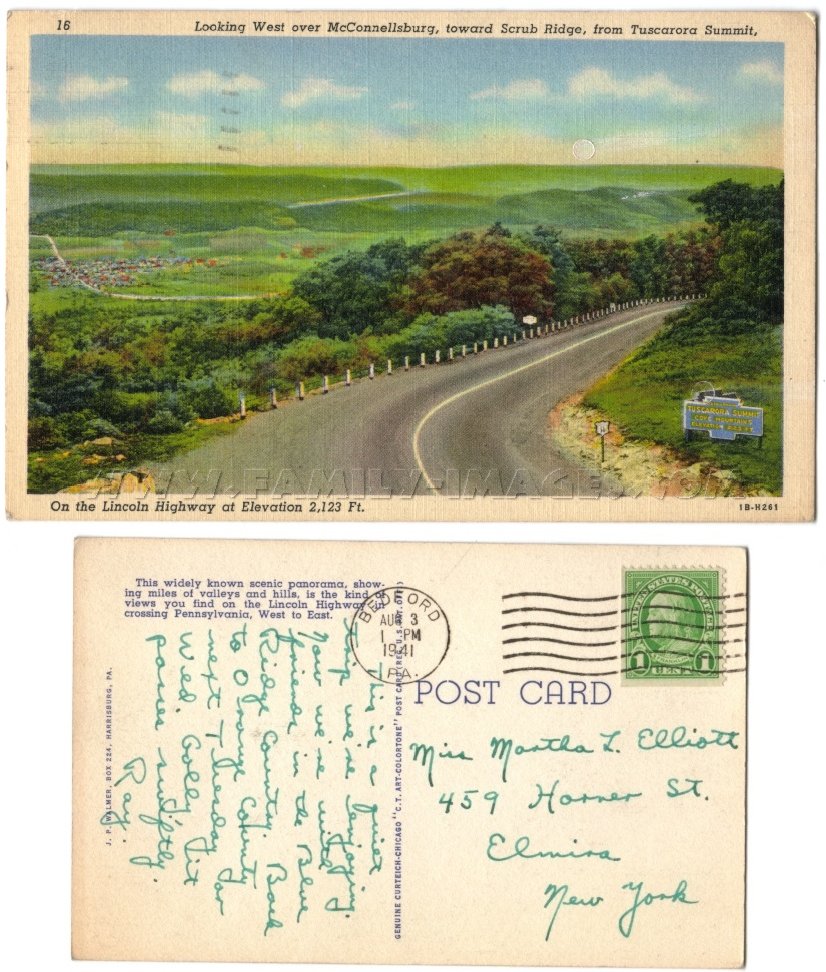 16 Looking West over McConnellsburg, toward Scrub Ridge, from Tuscarora Summit,
TUSCARORA SUMMIT
COVE MOUNTAINS
ELEVATION 2123 FT.
WWW.FAMILY-IMAGES.COM
On the Lincoln Highway at Elevation 2,123 Ft. 1B-H261
This widely known scenic panorama, show-
ing miles of valleys and hills, is the kind of
views you find on the Lincoln Highway in
crossing Pennsylvania, West to East.
BEDFORD
AUG 3
1 PM
1941
PA.
UNITED STATES POSTAGE
1 CENT 1
POST CARD
J. P. WALMER, BOX 224, HARRISBURG, PA.
GENUINE CURTEICH-CHICAGO "C.T. ART-COLORTONE" POST CARD (REG. U.S. PAT. OFF.)
This is a quiet
trip we're enjoying.
Now we're with
friends in the Blue
Ridge Country. Back
to Orange County
next Tuesday for
Wed. Golly, it
passes swiftly.
Ray.
Miss Martha L. Elliott
459 Horner St.
Elmira
New York